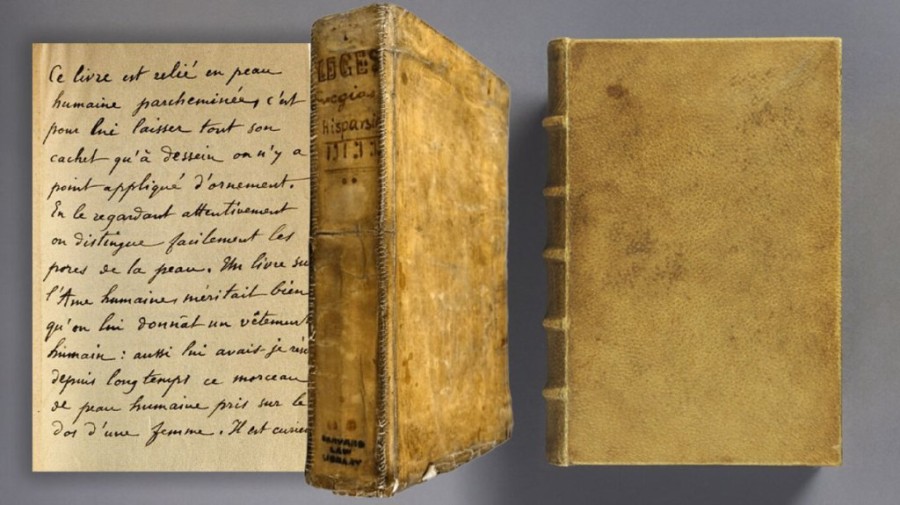 Ce livre est relié en peau
humaine parcheminée, c'est
pour lui laisser tout son
cachet qu'à dessein on n'y a
point appliqué d'ornement.
En le regardant attentivement
on distingue facilement les
pores de la peau. Un livre su
l'Ame humaine, méritait bien
qu'on lui donnât un vêtement
humain : aussi lui avais-je rés
depuis longtemps ce morceau
de peau humaine pris sur le
dos d'une femme. Il est curieu
LEGES
hispan
HARVARD
LAW
LIBRARY